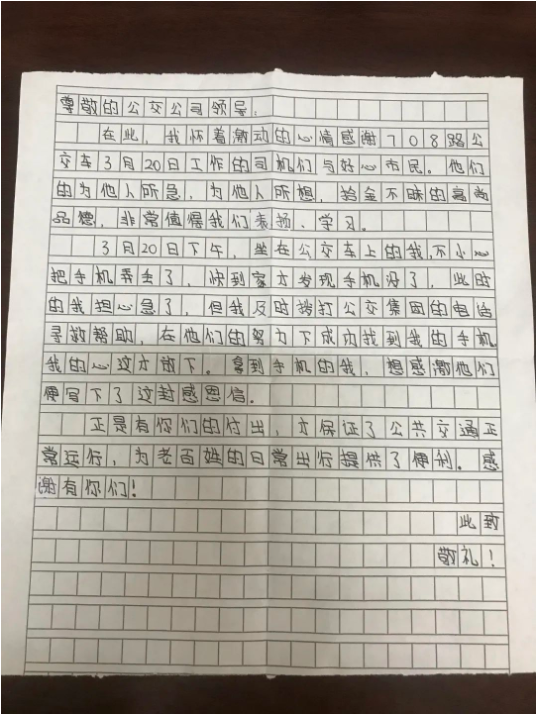 尊敬的公交公司领导：
在此，我怀着激动的心情感谢708路公
交车3月20日工作的司机们与好心市民。他们
的为他人所急，为他人所想，拾金不昧的高尚
品德，非常值得我们表扬、学习。
3月20日下午，坐在公交车上的我，不小心
把手机弄丢了，快到家才发现手机没了，此时
的我担心急了，但我及时拨打公交集团的电话
寻求帮助，在他们的努力下成功找到我的手机
我的心这才放下。拿到手机的我，想感激他们
便写下了这封感恩信。
正是有你们的付出，才保证了公共交通正
常运行，为老百姓的日常出行提供了便利。感
谢有你们！
此致
敬礼！